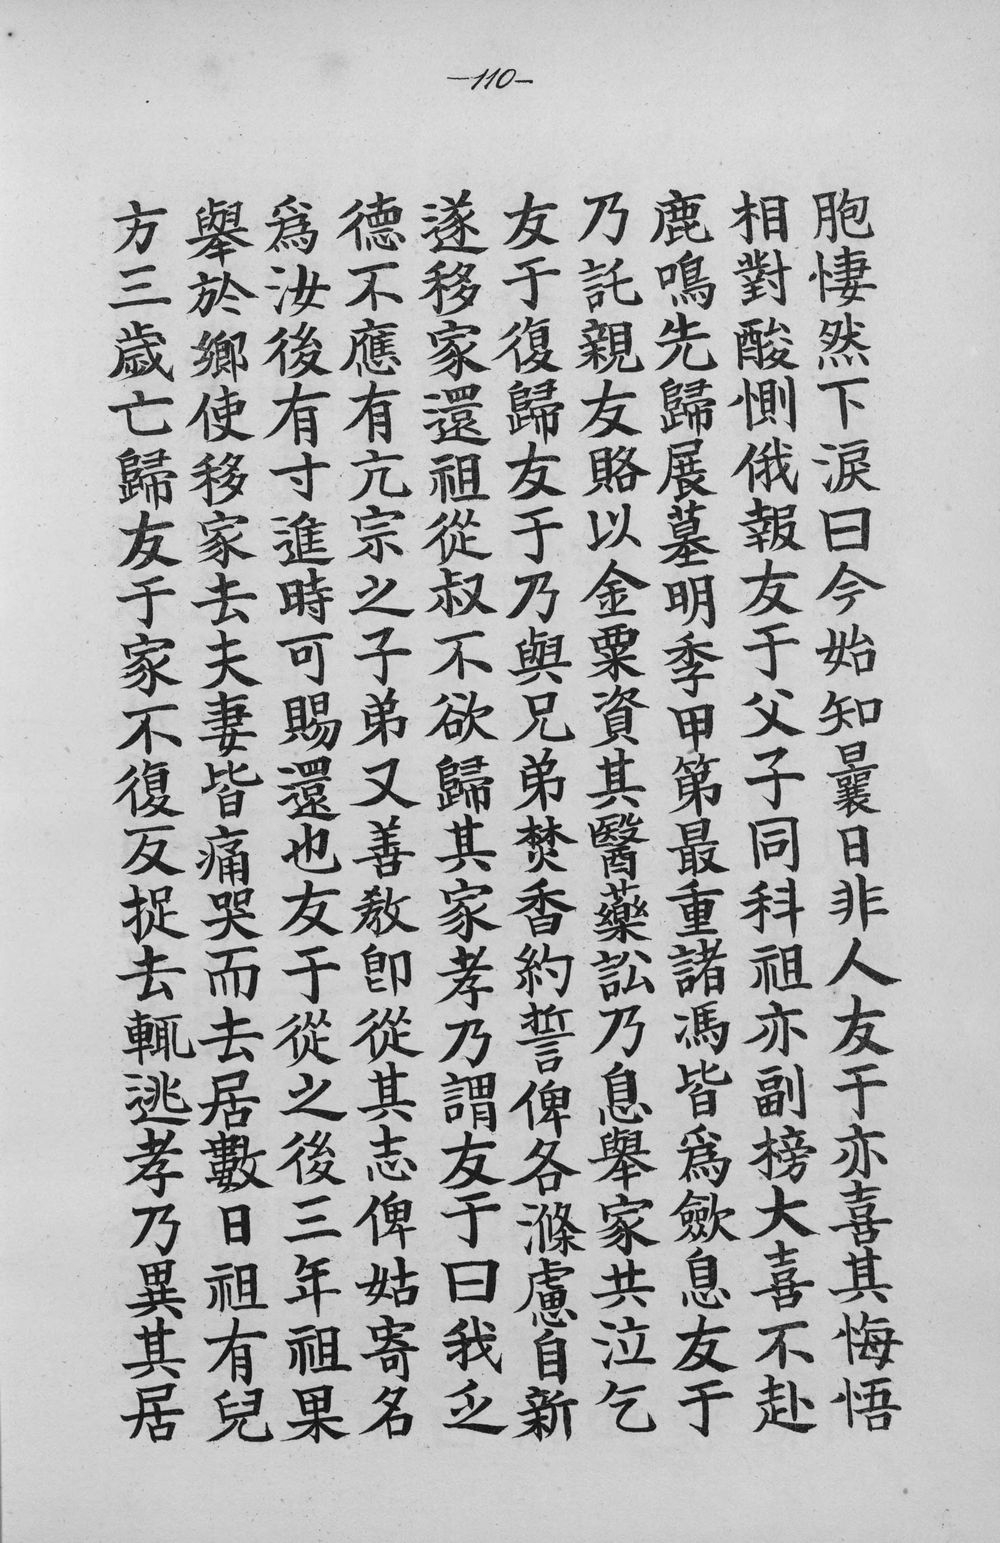 —110—
胞悽然下淚曰今始知曩日非人友于亦喜其悔悟
相對酸惻俄報友于父子同科祖亦副榜大喜不赴
鹿鳴先歸展墓明季甲第最重諸馮皆爲歛息友于
乃託親友賂以金粟資其醫藥訟乃息舉家共泣乞
友于復歸友于乃與兄弟焚香約誓俾各滌慮自新
遂移家還祖從叔不欲歸其家孝乃謂友于曰我乏
德不應有亢宗之子弟又善教卽從其志俾姑寄名
爲汝後有寸進時可賜還也友于從之後三年祖果
舉於鄉使移家去夫妻皆痛哭而去居數日祖有兒
方三歲亡歸友于家不復反捉去輒逃孝乃異其居